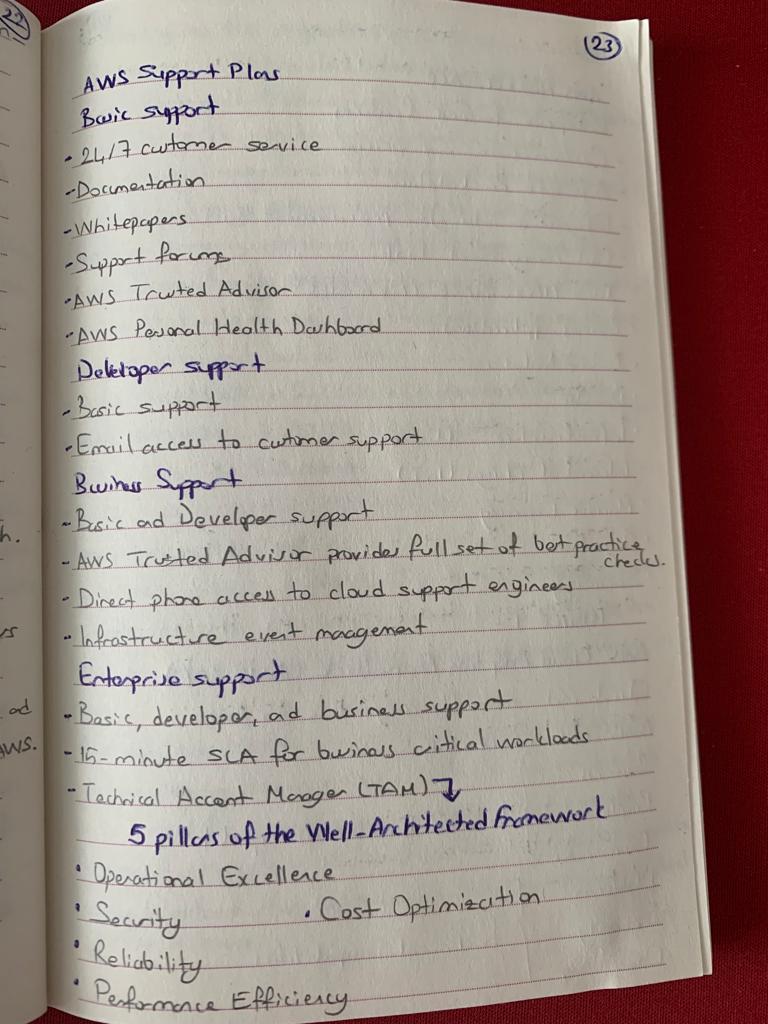 22
23
AWS Support Plans
Basic support
- 24/7 customer service
- Documentation
- Whitepapers
- Support forums
- AWS Trusted Advisor
- AWS Personal Health Dashboard
Developer support
- Basic support
- Email access to customer support
Business Support
- Basic ad Developer support
- AWS Trusted Advisor provides full set of best practice
checks.
- Direct phone access to cloud support engineers
- Infrastructure event management
Enterprise support
- Basic, developer, ad business support
- 15-minute SLA for business critical workloads
- Technical Account Manager (TAM) ↴
5 pillars of the Well-Architected framework
• Operational Excellence
• Security • Cost Optimization
• Reliability
• Performance Efficiency
h.
rs
ad
AWS.